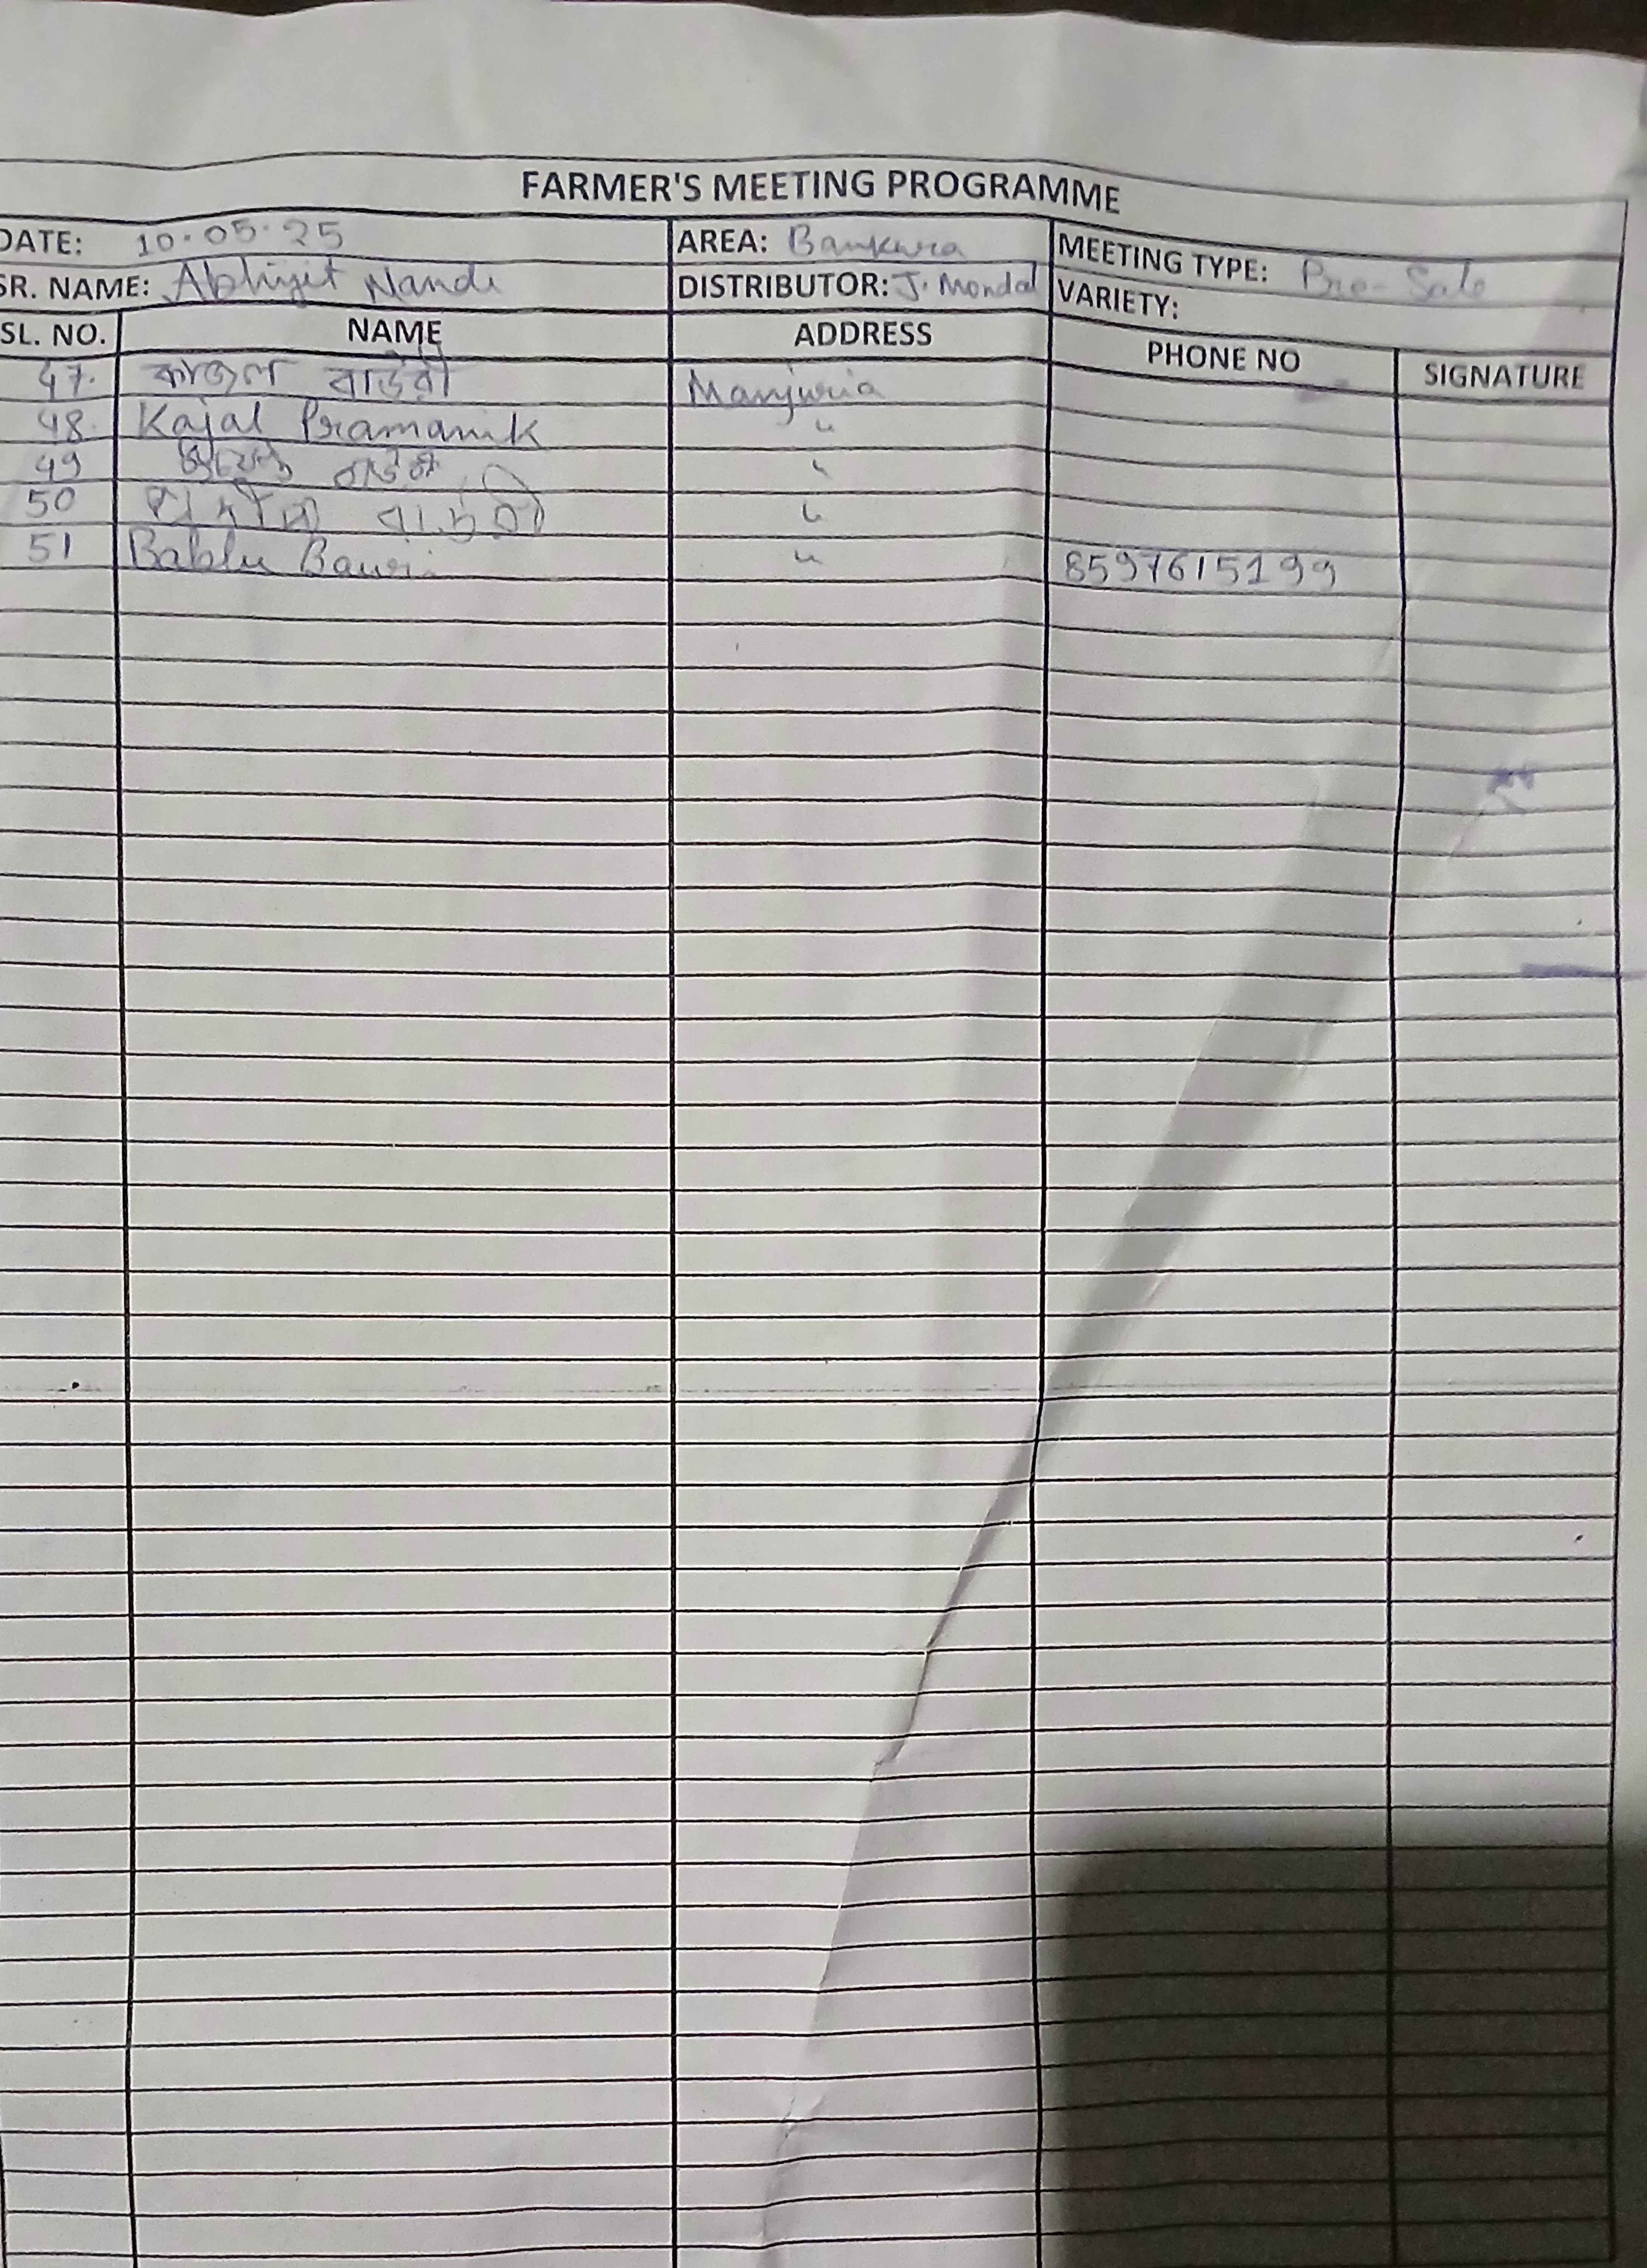 FARMER'S MEETING PROGRAMME
DATE: 10.05.25 AREA: Bankura MEETING TYPE: Pre-Sale
SR. NAME: Abhijit Nandi DISTRIBUTOR: J. Mondal VARIETY:
SL. NO. NAME ADDRESS PHONE NO SIGNATURE
47. কাজল বাউরী Manjuria
48. Kajal Pramanik "
49 বাউরী "
50 বাউরী "
51 Bablu Bauri " 8597615199